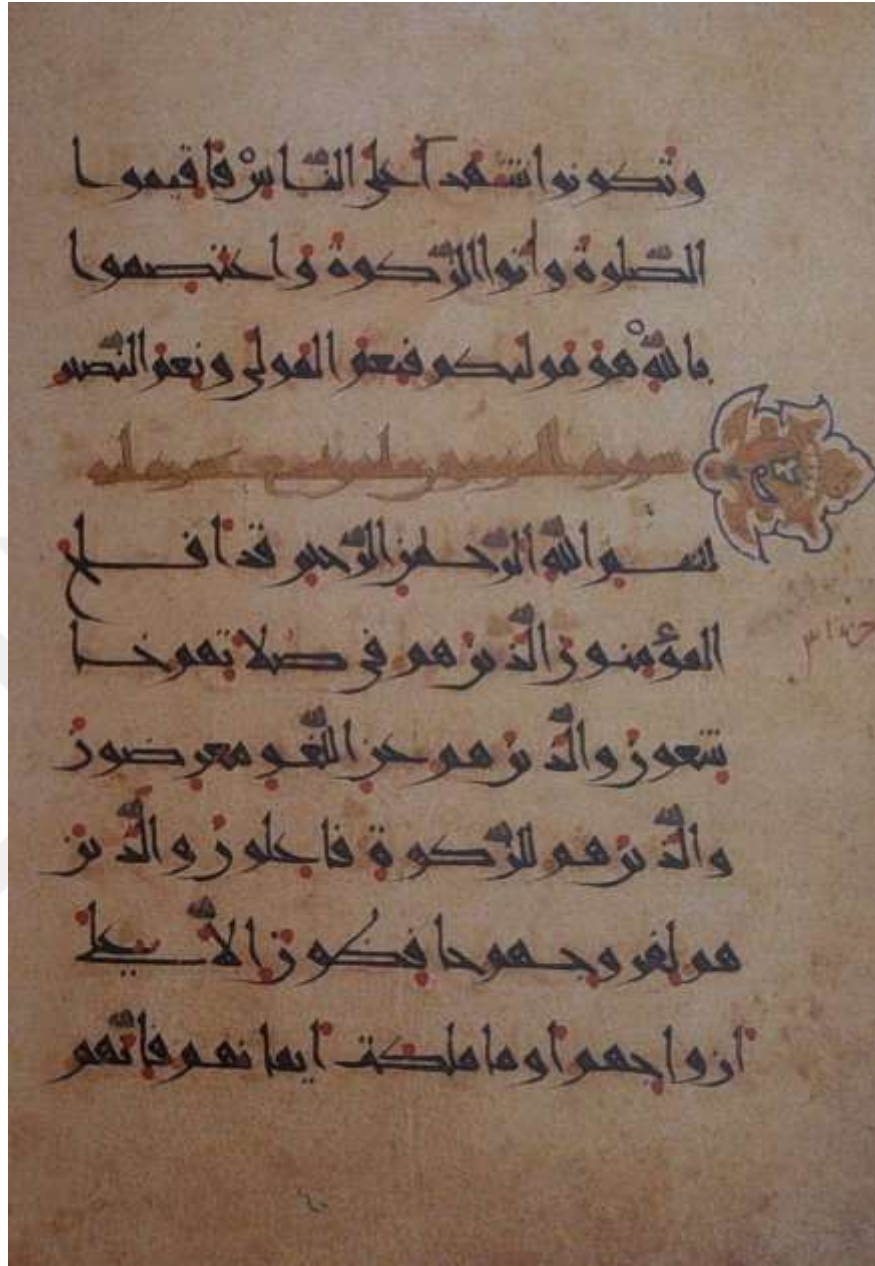 وتكونوا شهدا على الناس فاقيموا
الصلوة وأتوا الزكوة واعتصموا
بالله هو موليكم فنعم المولى ونعم النصير
سورة المؤمنون
بسم الله الرحمن الرحيم قد افلح
المؤمنون الذين هم في صلاتهم خا
شعون والذين هم عن اللغو معرضون
والذين هم للزكوة فاعلون والذين
هم لفروجهم حافظون الا على
ازواجهم او ما ملكت ايمانهم فانهم